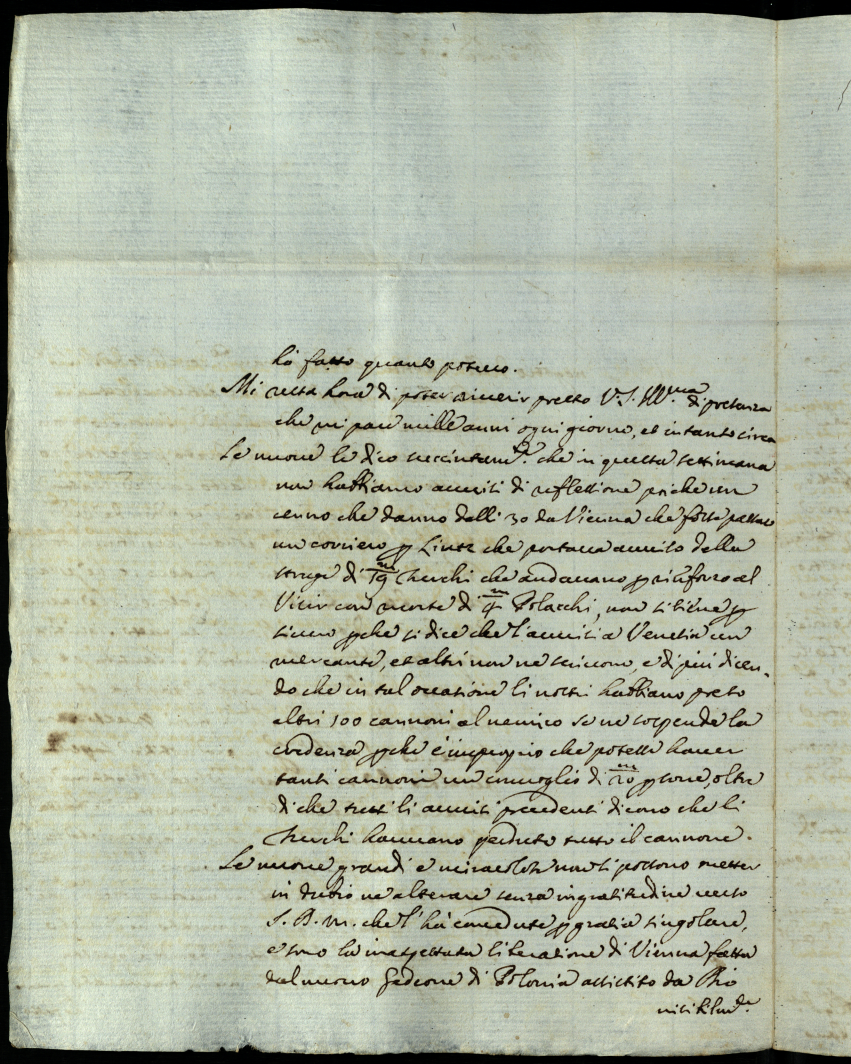 hà fatto quanto poteuo.
Mi resta hora di poter riuerir presto V.S. Ill.ma di presenza
che mi pare mille anni ogni giorno, et intanto circa
Le nuoue le dico succintam.te che in questa settimana
non habbiamo auuisi di riflessione perche un
cenno che danno delli 30 da Vienna che fosse passato
un corriero p Lintz che portaua auuiso della
strage di 19/m Turchi che andauano p rinforzo al
Visir con morte di 4/m Polacchi, non si tiene p
sicuro pche si dice che l'auuisi a Venetia un
mercante, et altri non ne scriuono, e di piu dicen-
do che in tal occasione li nostri habbiano preso
altri 100 cannoni al nemico se ne sospende la
credenza pche è improprio che potesse hauer
tanti cannoni un conuoglio di 20/m psone, oltre
di che tutti li auuisi precedenti dicono che li
Turchi haueuano perduto tutto il cannone.
Le nuoue grandi e miracolose non si possono metter
in dubio ne alterare senza ingratitudine uerso
S.D.M. che l'hà concedute p gratia singolare,
e sono la inaspettata liberatione di Vienna fatta
dal nuouo Gedeone di Polonia assistito da Dio
uisibilm.te